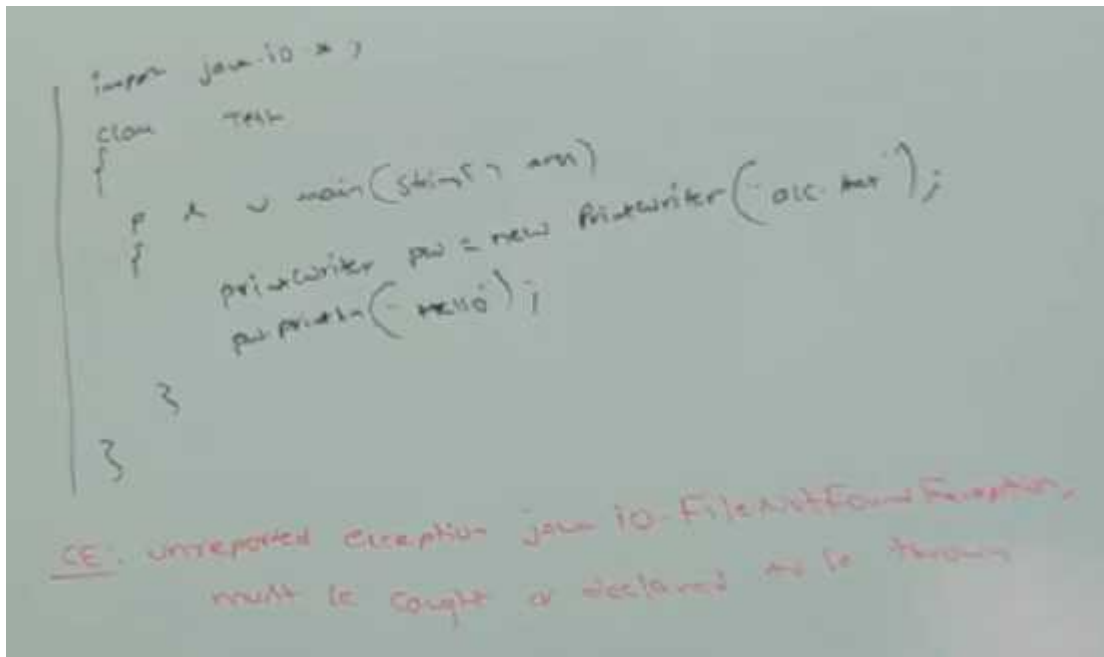 import java.io.*;
class Test
{
p s v main(String[] args)
{
PrintWriter pw = new PrintWriter("abc.txt");
pw.println("Hello");
}
}
CE: unreported exception java.io.FileNotFoundException;
must be caught or declared to be thrown